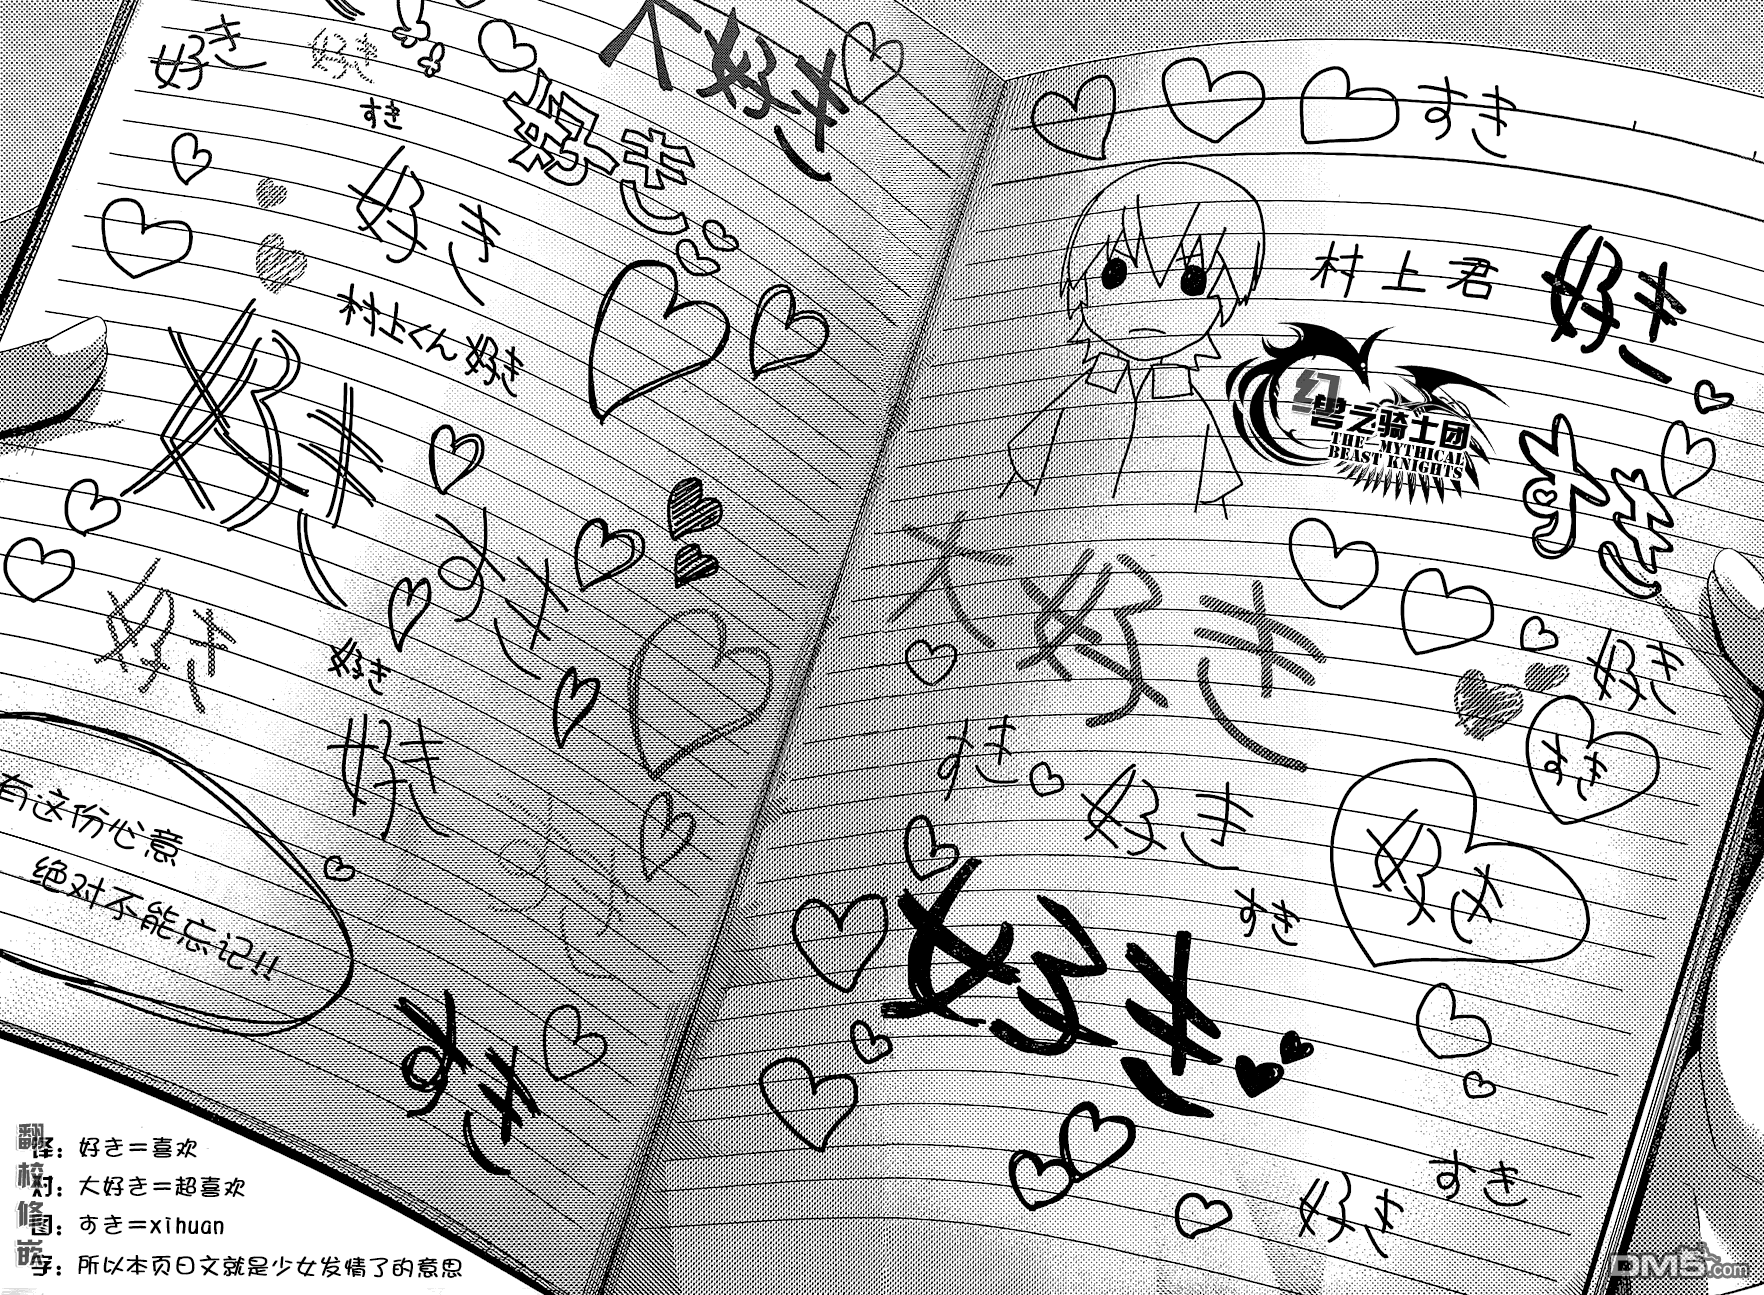 好き
好き
すき
大好き
好き
好き
村上くん好き
好き
すき
好き
好き
好き
すき
有这份心意
绝对不能忘记!!
すき
村上君 好き
幻兽之骑士团
THE MYTHICAL
BEAST KNIGHTS
好き
大好き
好き
すき
すき
好き
好き
すき
好き
好き
すき
翻 校 修 嵌
译：好き＝喜欢
对：大好き＝超喜欢
图：すき＝xihuan
字：所以本页日文就是少女发情了的意思
DM5.com